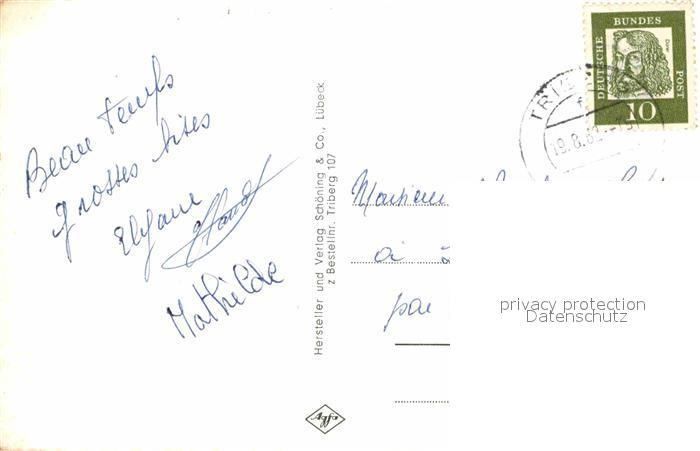 Beau temps
Grosses bises
Elyane
Mathilde
Hersteller und Verlag Schöning & Co., Lübeck
z Bestellnr. Triberg 107
Agfa
DEUTSCHE
BUNDES
POST
Dürer
10
TRIBERG
19.8.62
Monsieur
à
par
privacy protection
Datenschutz